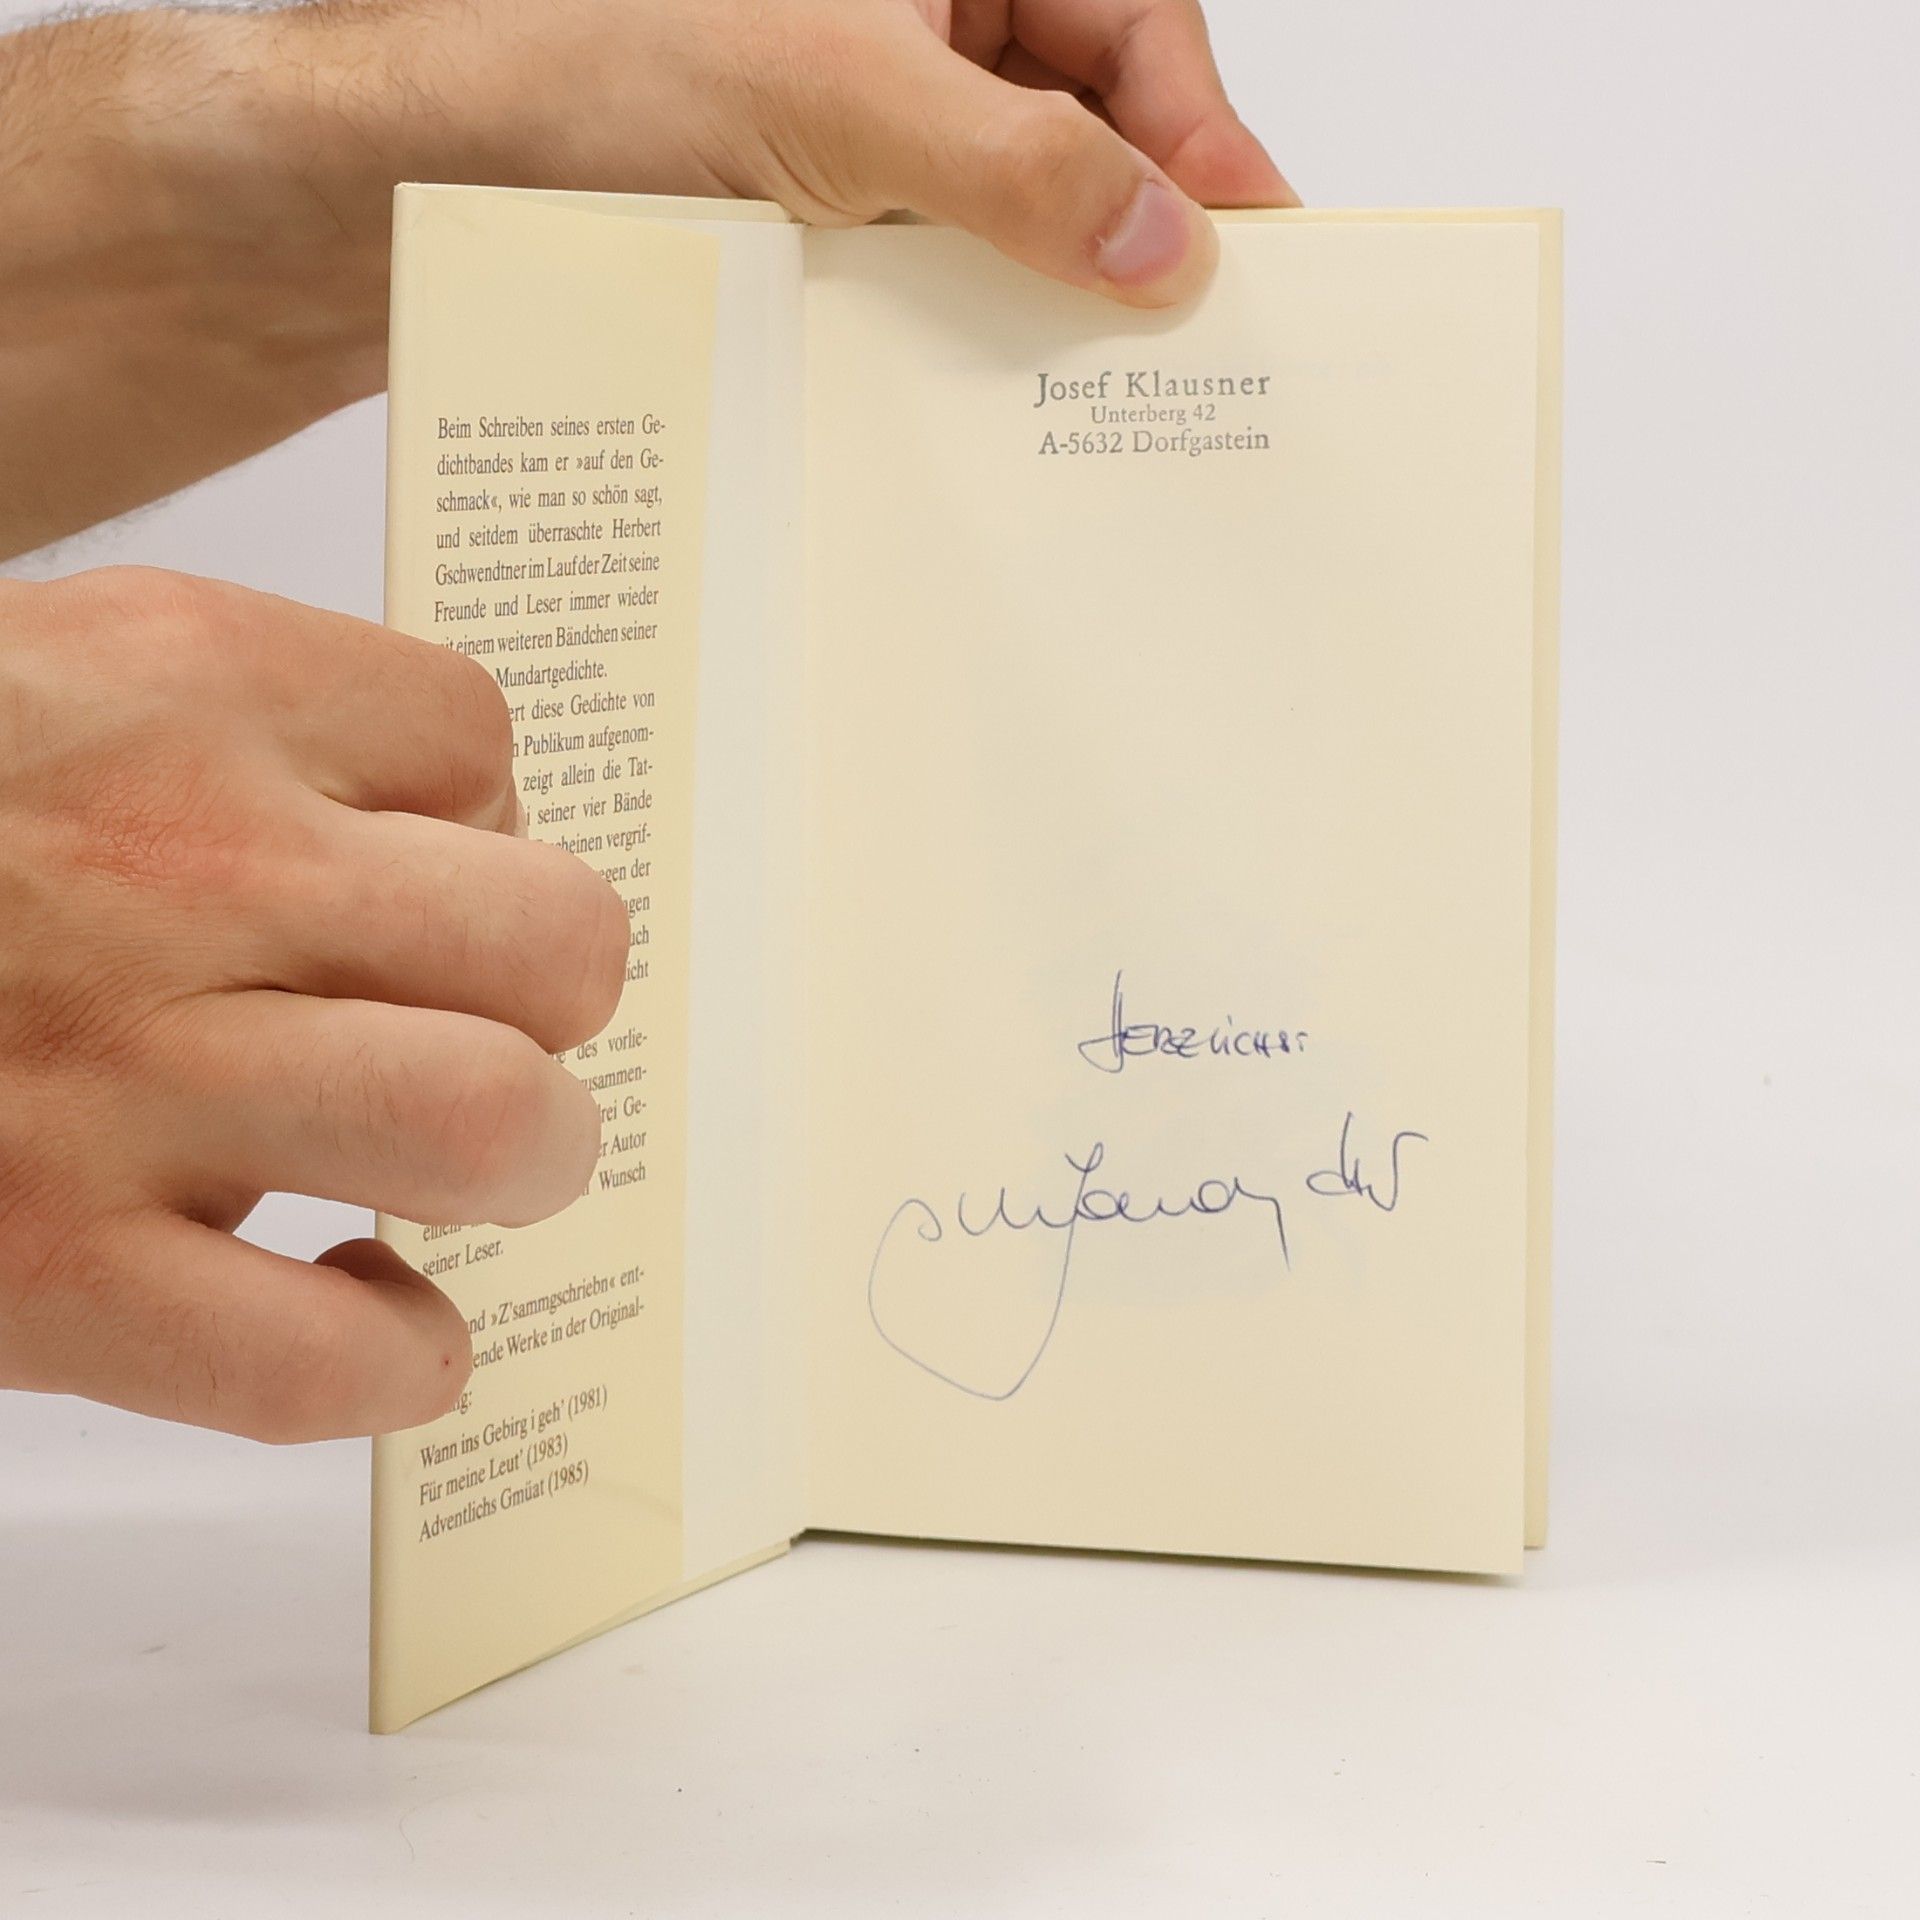 Beim Schreiben seines ersten Ge-
dichtbandes kam er »auf den Ge-
schmack«, wie man so schön sagt,
und seitdem überraschte Herbert
Gschwendtner im Lauf der Zeit seine
Freunde und Leser immer wieder
einem weiteren Bändchen seiner
Mundartgedichte.
diese Gedichte von
Publikum aufgenom-
zeigt allein die Tat-
seiner vier Bände
vergrif-
der
des vorlie-
Ge-
Autor
Wunsch
seiner Leser.
»Z'sammgschriebn« ent-
Werke in der Original-
Wann ins Gebirg i geh' (1981)
Für meine Leut' (1983)
Adventlichs Gmüat (1985)
Josef Klausner
Unterberg 42
A-5632 Dorfgastein
HERZLICHST